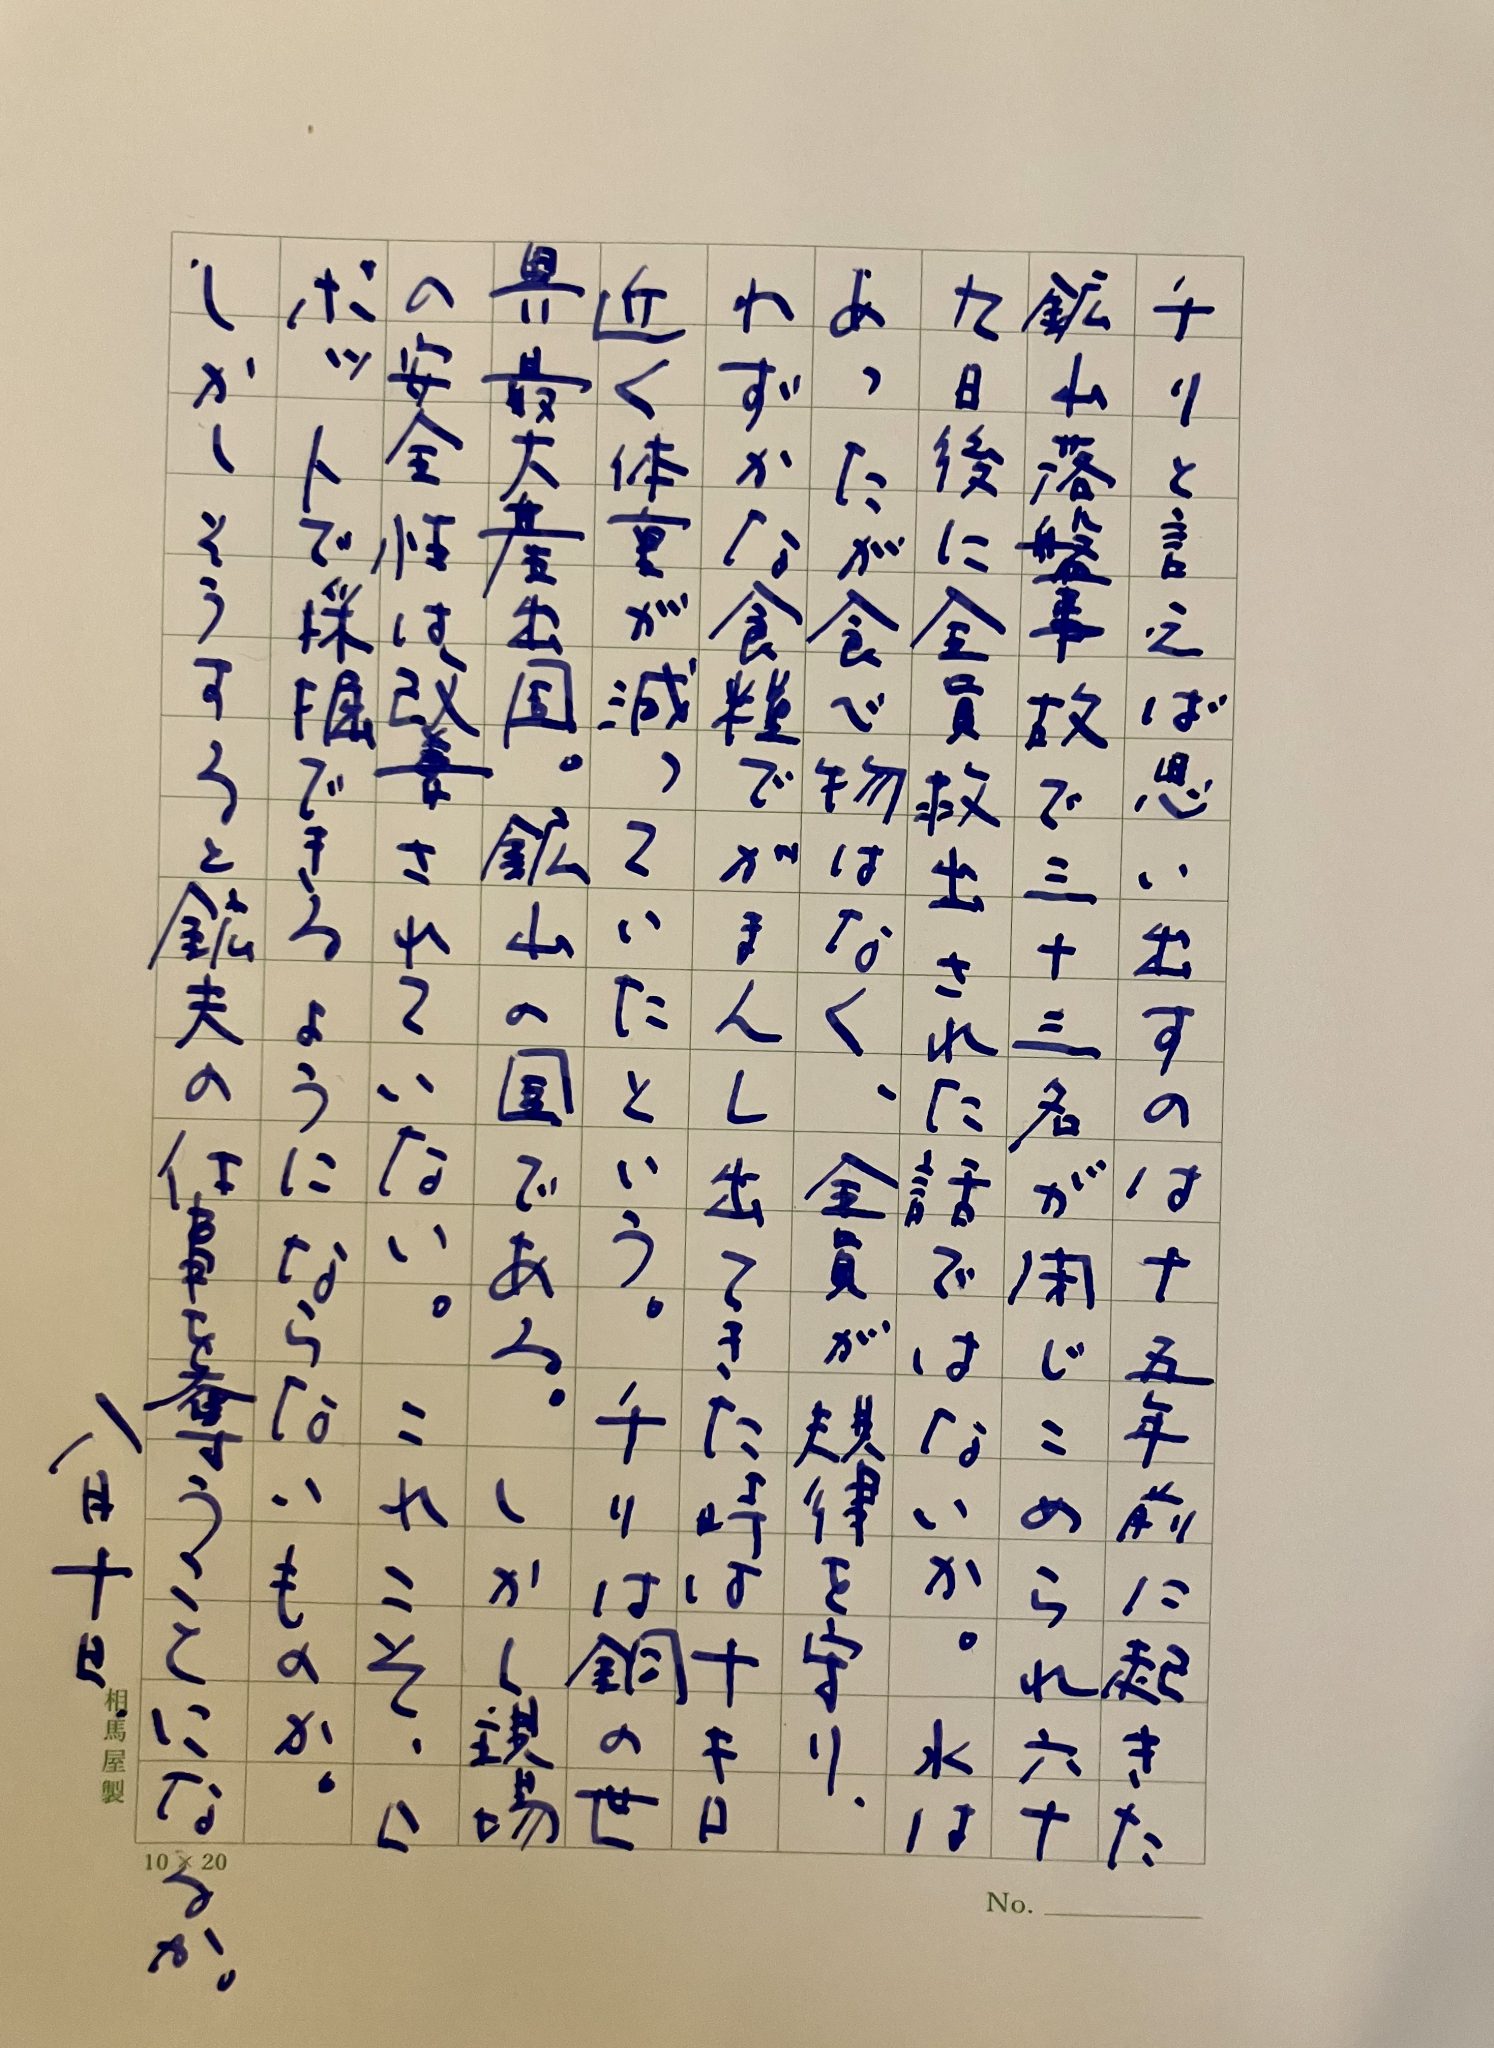 チリと言えば思い出すのは十五年前に起きた
鉱山落盤事故で三十三名が閉じこめられ六十
九日後に全員救出された話ではないか。水は
あったが食べ物はなく、全員が規律を守り、
わずかな食糧でがまんし出てきた時は十キロ
近く体重が減っていたという。チリは銅の世
界最大産出国。鉱山の国である。しかし現場
の安全性は改善されていない。これこそ、ロ
ボットで採掘できるようにならないものか。
しかしそうすると鉱夫の仕事を奪うことにな
るか。
八月十日
相馬屋製
10×20
No.